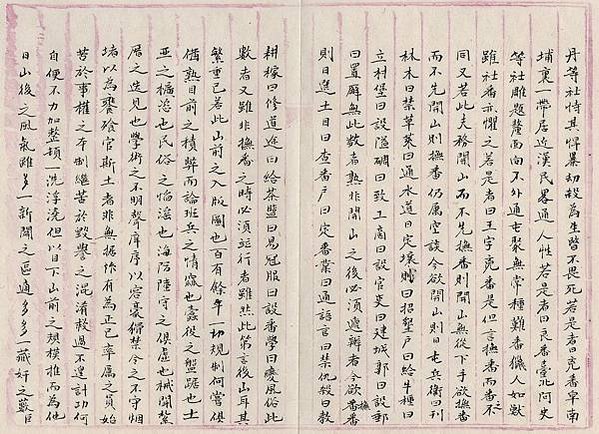 丹等社恃其悍暴劫殺為生暋不畏死若是者曰兇番卑南
埔裏一帶居近漢民畧通人性若是者曰良番臺北阿史
等社雕題黥面向不外通屯聚無常種難番獵人如獸
雖社番亦懼之若是者曰王字兇番是但言撫番而番之不
同又若此夫務開山而不先撫番則開山無從下手欲撫番
而不先開山則撫番仍属空談今欲開山則曰屯兵衛曰刊
林木曰焚草萊曰通水道曰定壤則曰招墾戶曰給牛種曰
立村堡曰設隘碉曰致工商曰設官吏曰建城郭曰設郵
曰置廨無此數者孰非開山之後必須遞辦者今欲撫番番
則曰選土目曰查番戶曰定番業曰通語言曰禁仇殺曰教
耕稼曰修道途曰給茶鹽曰易冠服曰設番學曰變風俗此
數者又雖非撫番之時必須並行者雖然此第言後山耳其
繁重已若此山前之入版圖也百有餘年一切規制何嘗俱
備就目前之積弊而論班兵之惰蠹也蠹役之盤踞也土
匪之橫恣也民俗之慆淫也海防陸守之俱虛也械鬭紮
厝之迭見也學術之不明庠序以容豪猾禁令之不守烟
堵以為饔飧官斯土者非無振作有為正己率属之員始
苦於事權之牽制繼苦於毀譽之混淆救過不遑計功何
自便不力加整頓一洗浮澆但以目下山前之規模推而為他
日山後之風氣雖多一新闢之區適多一藏奸之藪臣